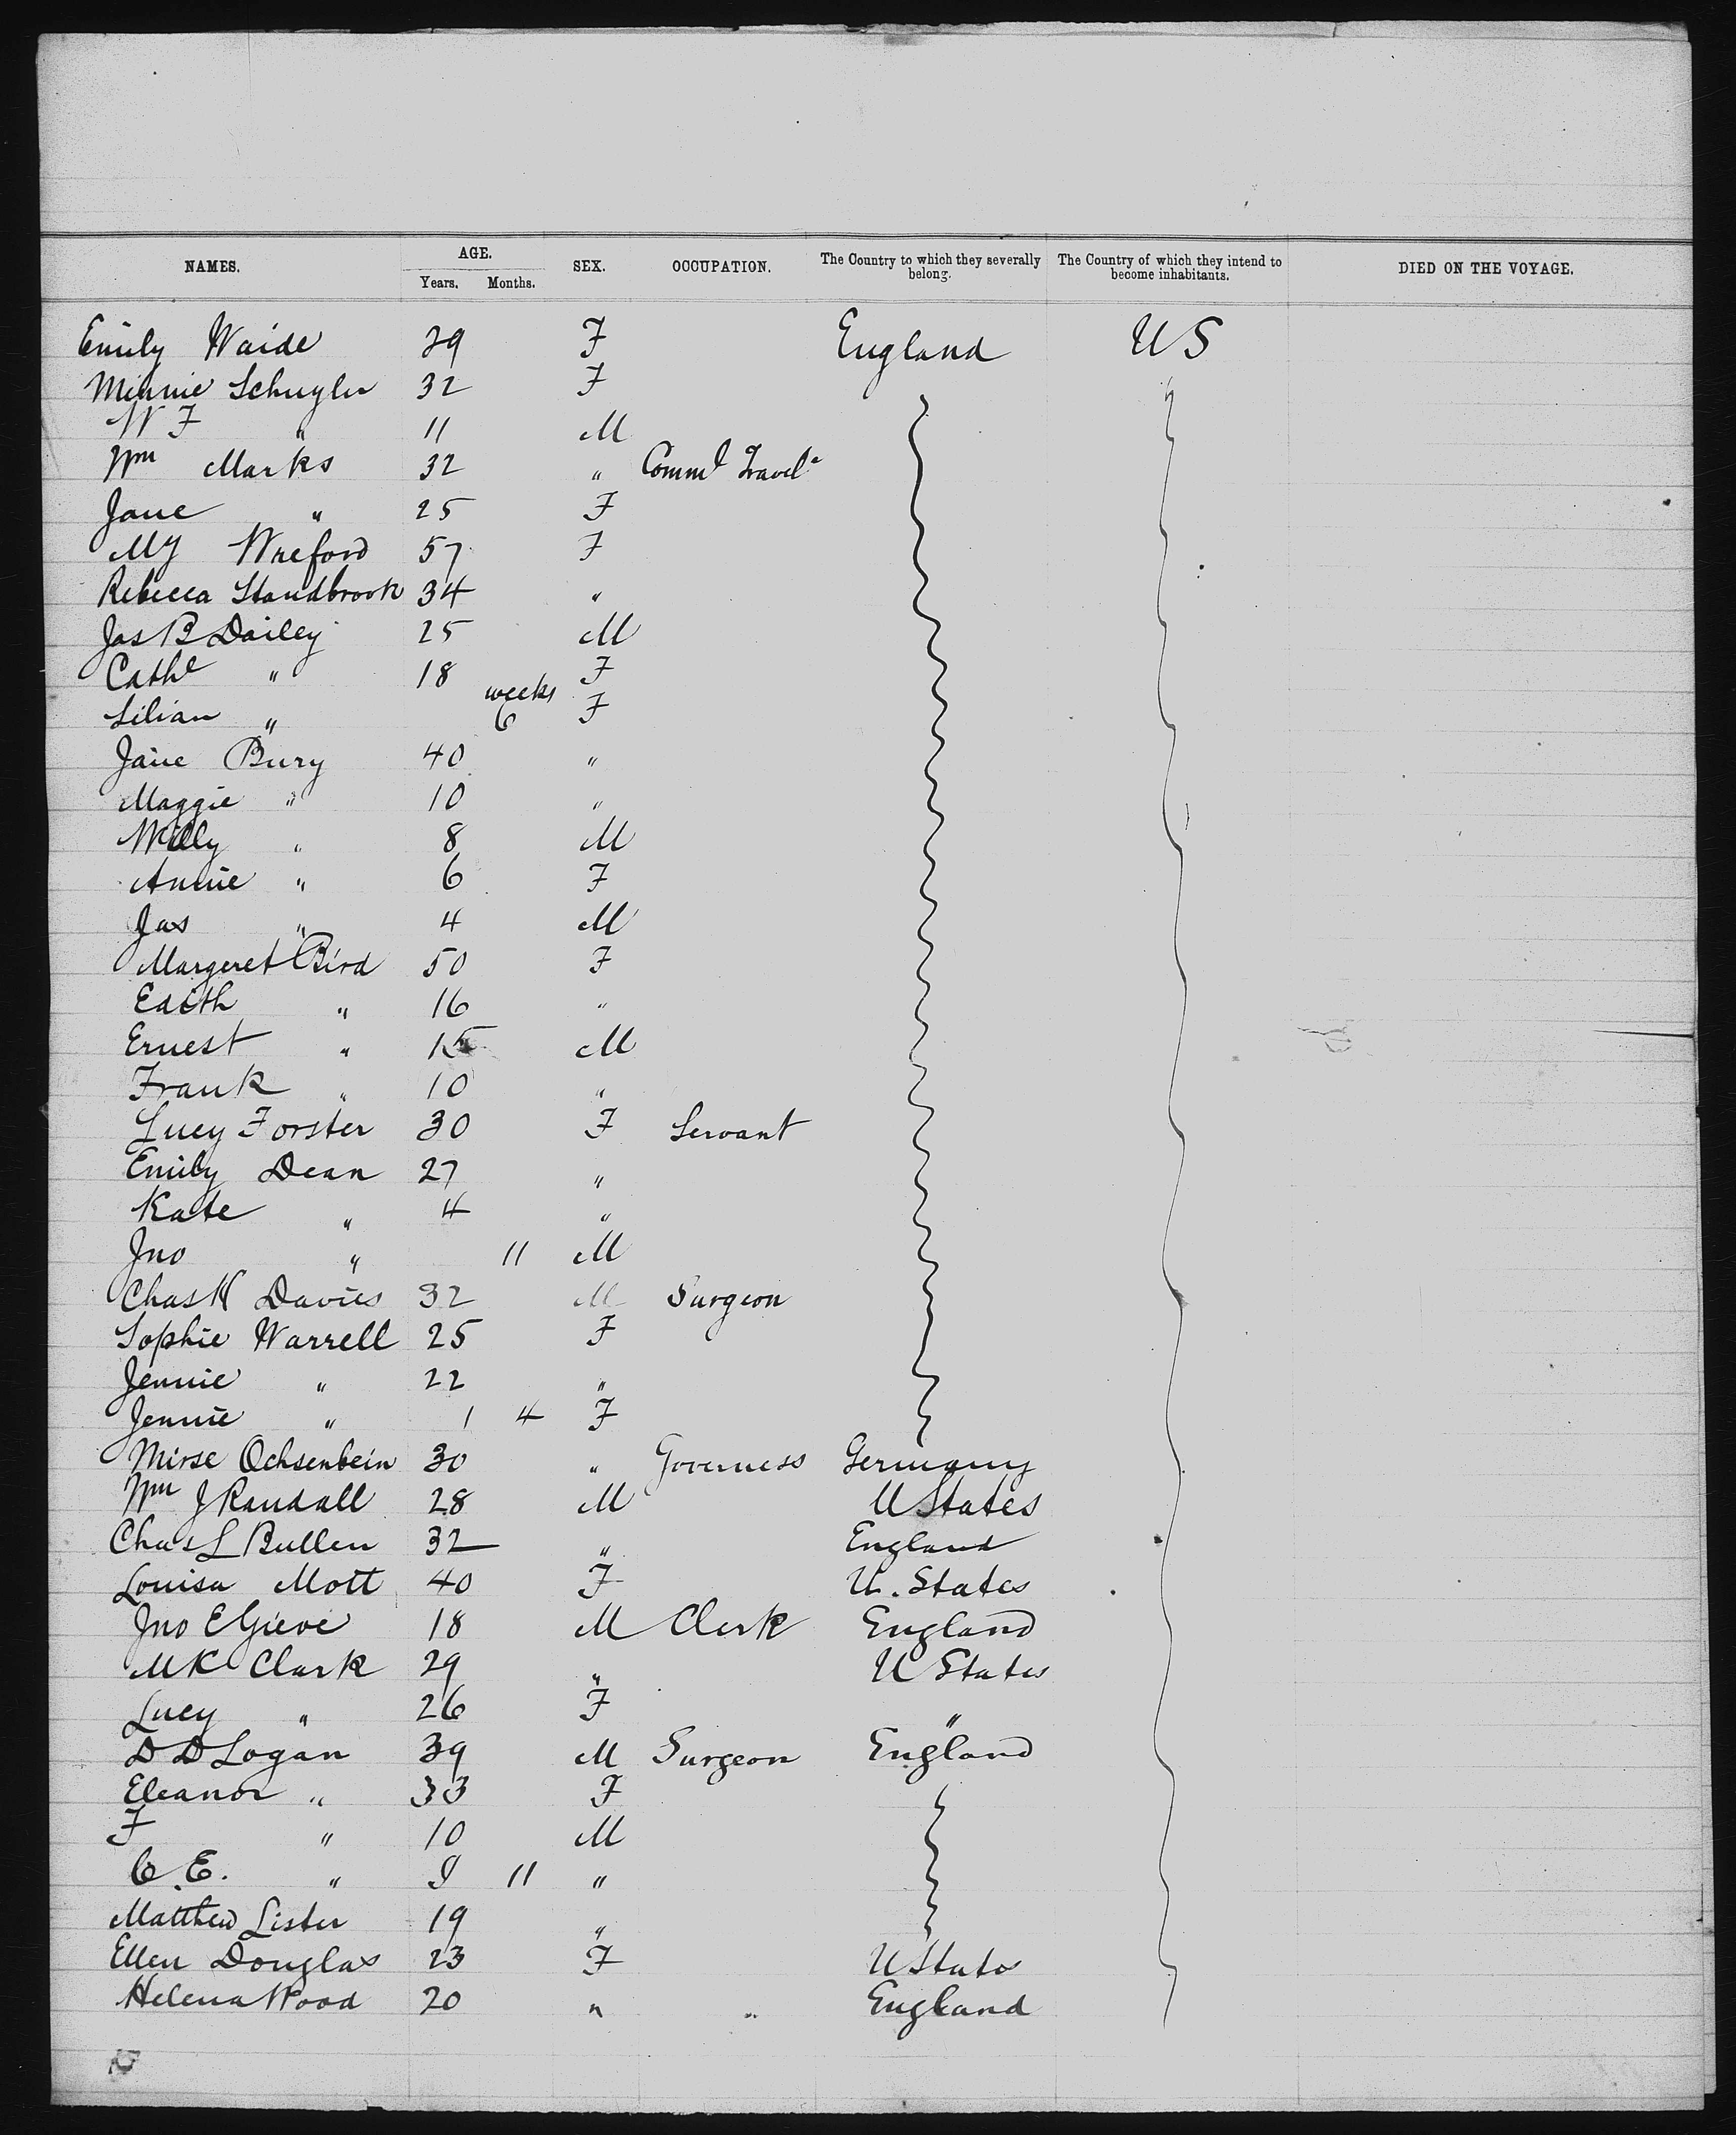 NAMES. AGE. SEX. OCCUPATION. The Country to which they severally belong. The Country of which they intend to become inhabitants. DIED ON THE VOYAGE.
Years. Months.
Emily Waide 29 F England US
Minnie Schuyler 32 F
W F " 11 M
Wm Marks 32 " Comml Travelr
Jane " 25 F
My Wreford 57 F
Rebecca Standbrook 34 "
Jas B Dailey 25 M
Cathe " 18 F
Lilian " weeks 6 F
Jane Bury 40 "
Maggie " 10 "
Willy " 8 M
Annie " 6 F
Jas " 4 M
Margeret Bird 50 F
Edith " 16 "
Ernest " 15 M
Frank " 10 "
Lucy Forster 30 F Servant
Emily Dean 27 "
Kate " 4 "
Jno " 11 M
Chas W Davies 32 M Surgeon
Sophie Warrell 25 F
Jennie " 22 "
Jennie " 1 4 F
Ochsenbein 30 " Governess Germany
Wm J Randall 28 M U States
Chas L Bullen 32 " England
Louisa Mott 40 F U. States
Jno E Gieve 18 M Clerk England
M K Clark 29 " U States
Lucy " 26 F "
D D Logan 39 M Surgeon England
Eleanor " 33 F
F " 10 M
C. E. " 11 "
Matthew Lister 19 "
Ellen Douglas 23 F U States
Helena Wood 20 " " England